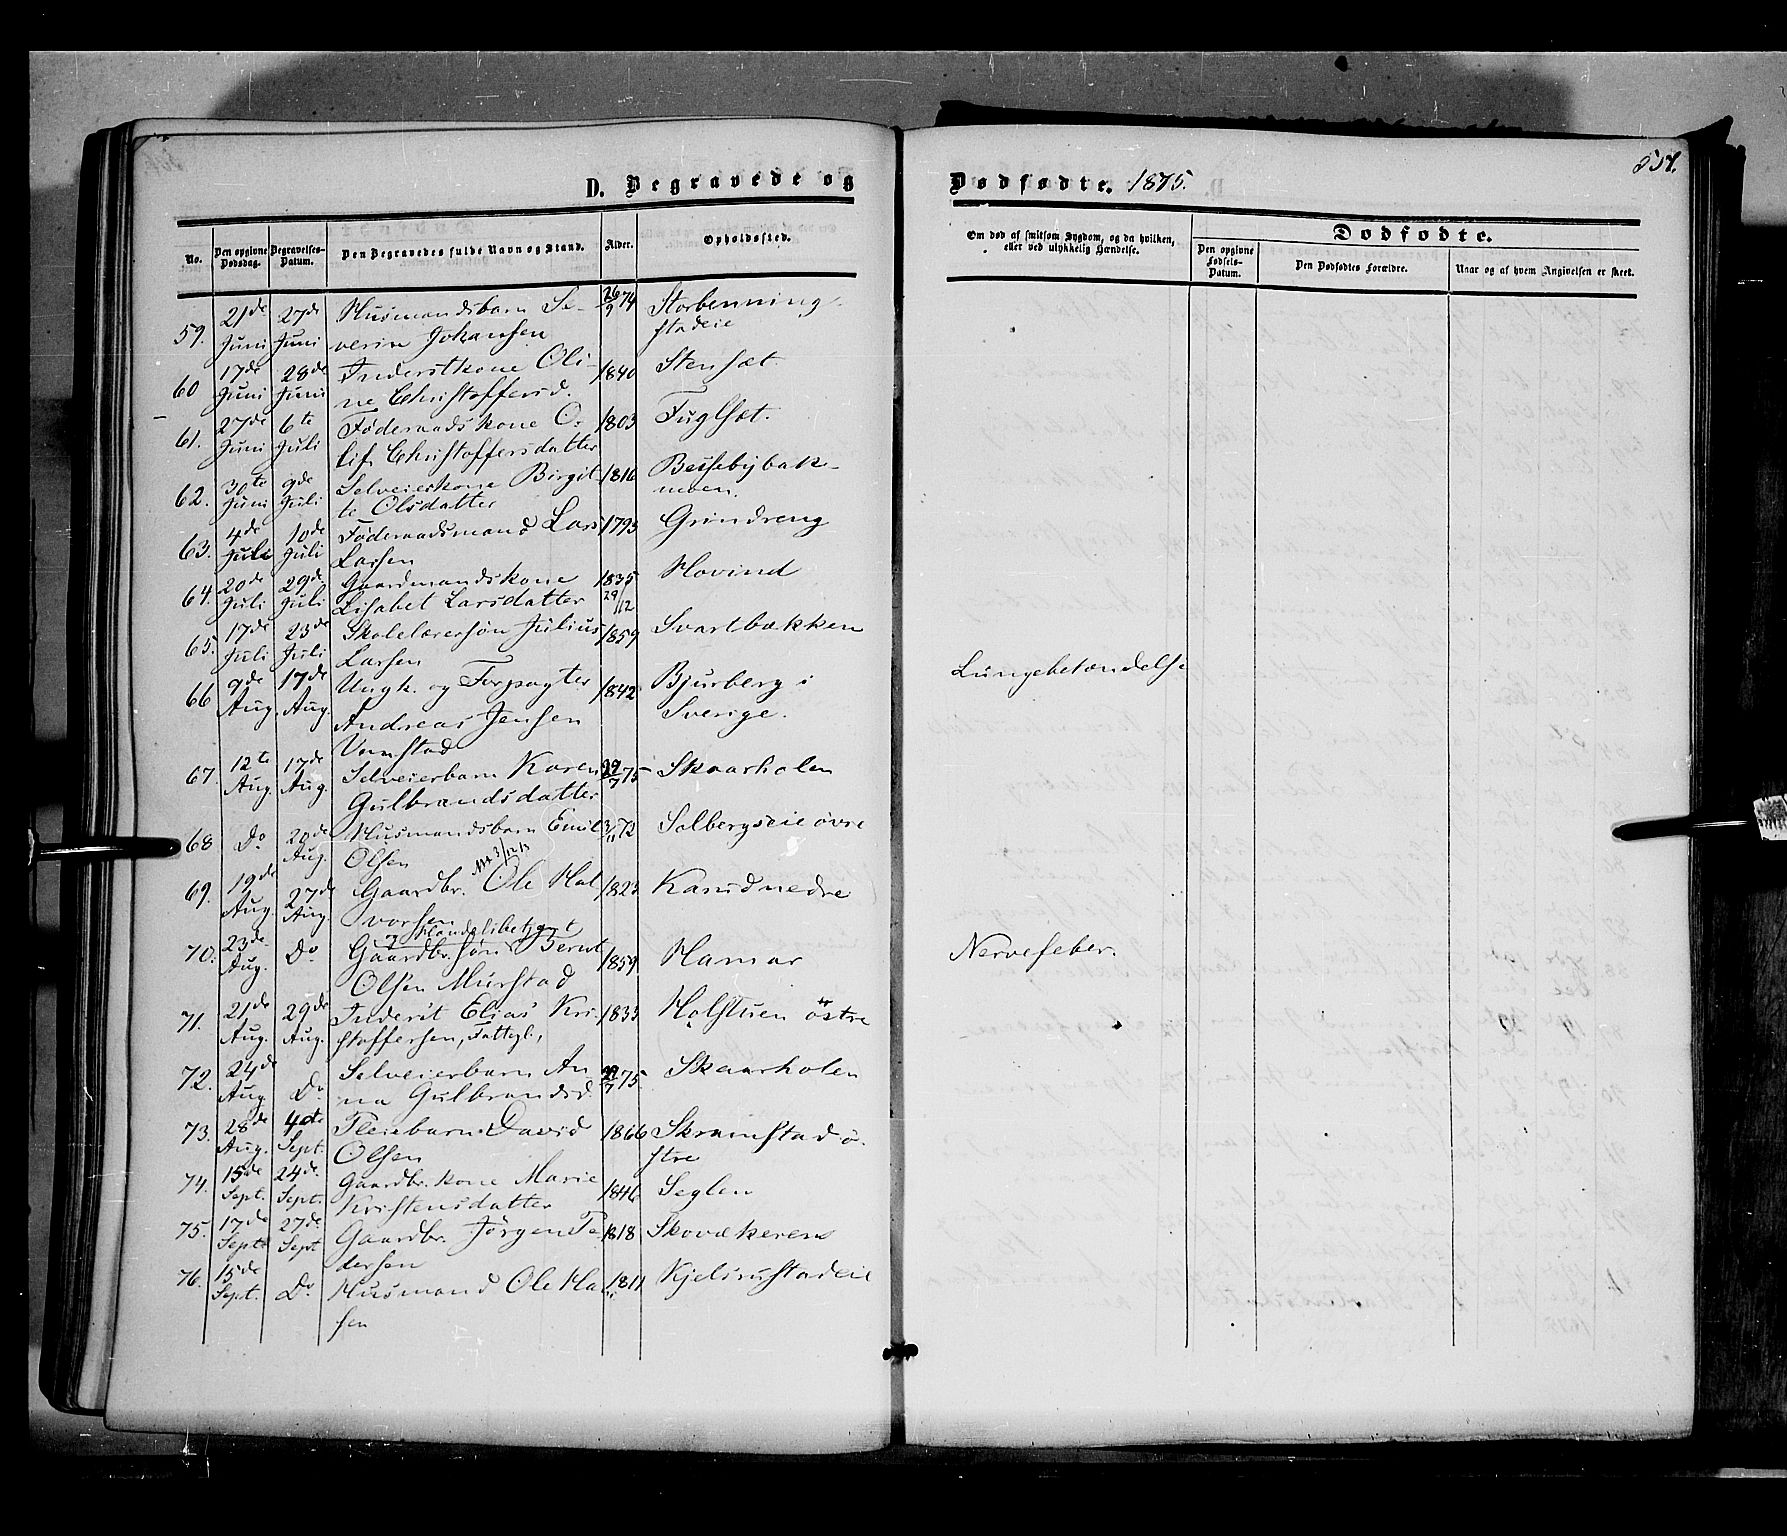 D. Begravede og
Dødfødte. 1875.
No.
Den opgivne Dødsdag.
Begravelses-Datum.
Den Begravedes fulde Navn og Stand.
Alder.
Opholdssted.
Om død af smitsom Sygdom, og da hvilken,
eller ved ulykkelig Hændelse.
Dødfødte.
Den opgivne Fødsels-Datum.
Den Dødfødtes Forældre.
Naar og af hvem Angivelsen er skeet.
59. 21de Juni 27de Juni Husmandsbarn Se- 26/9 74 Storbenning-
verin Johansen stadeie
60 17de Juni 28de Juni Inderstkone Oli- 1840 Stensæt.
ne Christoffersd.
61. 27de Juni 6te Juli Føderaadskone O- 1803 Fuglsæt.
lif Christoffersdatter
62. 30te Juni 9de Juli Selveierkone Birgit- 1816 Bessebybak-
te Olsdatter
63. 4de Juli 10de Juli Føderaadsmand Lars 1793 Grindreng
Larsen
64. 20de Juli 29de Juli Gaardmandskone 1835 Hovind
Lisabet Larsdatter 29/12
65. 17de Juli 23de Juli Skolelærersøn Julius 1859 Svartbækken
Larsen
66 9de Aug. 17de Aug. Ungk. og Forpagter 1842 Bjurberg i Lungebetændelse
Andreas Jensen Sverige.
67. 12te Aug. 17de Aug. Selveierbarn Karen 29/7 75 Skaarholen
Gulbrandsdatter
68 Do 20de Aug. Husmandsbarn Emil 3/11 72 Solbergseie øvre
Olsen
69. 19de Aug. 27de Aug. Gaardbr. Ole Hal 1823 nedre
vorsen
70. 23de Aug. Do Gaardbr. søn Bernt 1859 Hamar Nervefeber.
Olsen Murstad
71. 21de Aug. 29de Aug. Inderst Elias Kri- 1833 Holstuen östre
stoffersen, Fattigl.,
72. 24de Aug Do Selveierbarn An 29/7 75. Skaarholen
na Gulbrandsd.
73. 28de Aug. 4de Sept. Pleiebarn David 1866 Skramstad ø-
Olsen stre
74. 15de Sept. 24de Sept. Gaardbr. kone Marie 1846 Seglen
Kristensdatter
75. 17de Sept. 27de Sept Gaardbr. Jørgen Pe 1818 Skovækeren
dersen
76. 15de Sept. Do Husmand Ole Ha 1811
sen